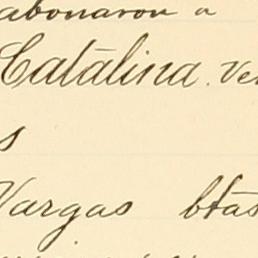 abonaron a
Catalina Ve
s
Vargas btas